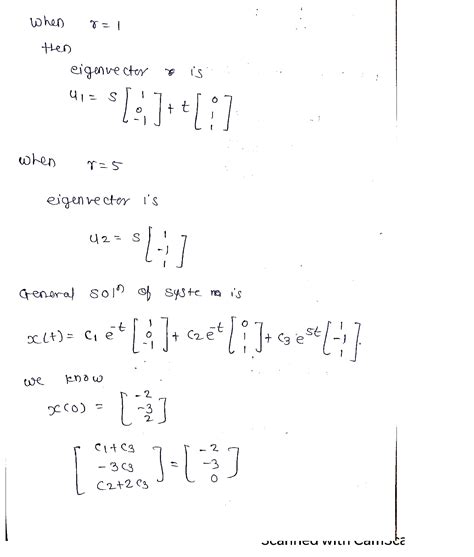 when r = 1
then
eigenvector is
u1 = s [1 0 -1] + t [0 1 1]
when r = 5
eigenvector is
u2 = s [1 -1 1]
General solⁿ of system is
x(t) = c1 e^-t [1 0 -1] + c2 e^-t [0 1 1] + c3 e^5t [1 -1 1].
we know
x(0) = [-2 -3 2]
[c1+c3 -3c3 c2+2c3] = [-2 -3 0]
Scanned with CamSca